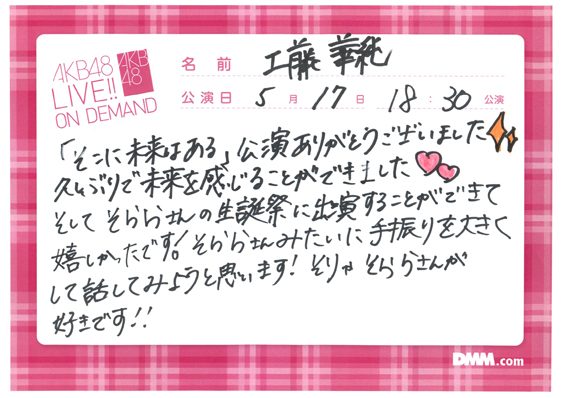 AKB48
LIVE!!
ON DEMAND
AKB
48
名前 工藤華純
公演日 5月17日 18:30公演
「そこに未来はある」公演ありがとうございました
久しぶりで未来を感じることができました
そして そららさんの生誕祭に出演することができて
嬉しかったです!そららさんみたいに手振りを大きく
して話してみようと思います! そりゃ そららさんが
好きです!!
DMM.com